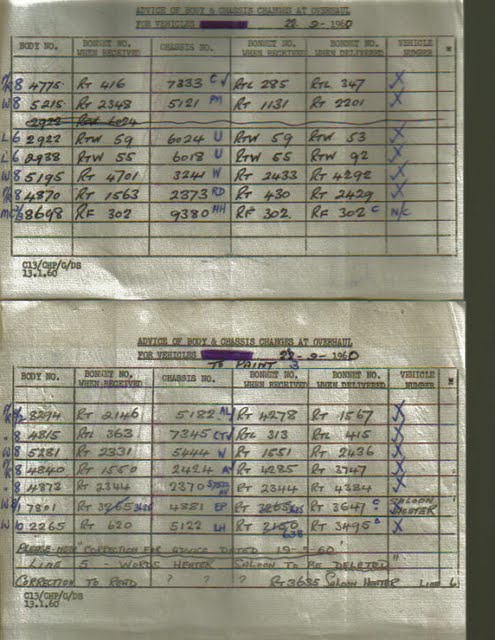 ADVICE OF BODY & CHASSIS CHANGES AT OVERHAUL
FOR VEHICLES 22-9-1960
BODY NO. BONNET NO. WHEN RECEIVED CHASSIS NO. BONNET NO. WHEN RECEIVED BONNET NO. WHEN DELIVERED VEHICLE NUMBER
8 4775 RT 416 7333 C RTL 285 RTL 347 X
W8 5215 RT 2348 5121 PM RT 1131 RT 2201 X
2922 RTW 6024
L6 2922 RTW 59 6024 U RTW 59 RTW 53 X
L6 2938 RTW 55 6018 U RTW 55 RTW 92 X
W8 5195 RT 4701 3241 W RT 2433 RT 4292 X
8 4870 RT 1563 2373 RD RT 430 RT 2429 X
8698 RF 302 9380 HH RF 302 RF 302 C N/C
C13/CHP/G/DS
13.1.60
ADVICE OF BODY & CHASSIS CHANGES AT OVERHAUL
FOR VEHICLES 22-9-1960
TO PAINT 3
BODY NO. BONNET NO. WHEN RECEIVED CHASSIS NO. BONNET NO. WHEN RECEIVED BONNET NO. WHEN DELIVERED VEHICLE NUMBER
8294 RT 2146 5182 AL RT 4278 RT 1567 X
8 4815 RTL 363 7345 RTL 313 RTL 415 X
W8 5281 RT 2331 5444 W RT 1551 RT 2436 X
8 4840 RT 1550 2424 RT 4285 RT 3747 X
8 4873 RT 2344 2370 RT 2344 RT 4384 X
7801 RT 3265 4881 EP RT 3265 RT 3647 C SALOON HEATER
W 10 2265 RT 620 5122 LH RT 2150 638 RT 3495 X
PLEASE NOTE "CORRECTION FOR ADVICE DATED 19-9-60"
LINE 5 - WORDS HEATER SALOON TO BE DELETED"
CORRECTION TO READ ? ? ? RT 3635 SALOON HEATER LINE 6
C13/CHP/G/DS
13.1.60